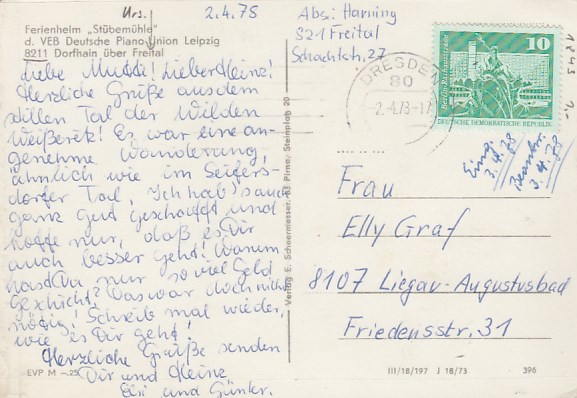 Urs.
2.4.78
Abs: Harning
821 Freital
Schachtstr. 27
Ferienheim „Stübemühle"
d. VEB Deutsche Piano-Union Leipzig
8211 Dorfhain über Freital
Liebe Muddi! Lieber Heinz!
Herzliche Grüße aus dem
stillen Tal der Wilden
Weißeritz! Es war eine an-
genehme Wanderung,
ähnlich wie im Seifers-
dorfer Tal. Ich hab's auch
ganz gut geschafft und
hoffe nur, daß es Dir
auch besser geht! Warum
hast Du nur so viel Geld
geschickt? Das war doch nicht
nötig! Schreib mal wieder,
wie es Dir geht!
Herzliche Grüße senden
Dir und Heinz
Elli und Günter.
EVP M —.25
Verlag E. Schaermesser, 83 Pirna, Steinplatz 20
DRESDEN
80
-2.-4.78-17
10
Berlin-Rathausstraße
DEUTSCHE DEMOKRATISCHE REPUBLIK
1843
Eing.
3.4.78
Beantw.
3.4.78
Frau
Elly Graf
8107 Liegau-Augustusbad
Friedensstr. 31
III/18/197 J 18/73 396